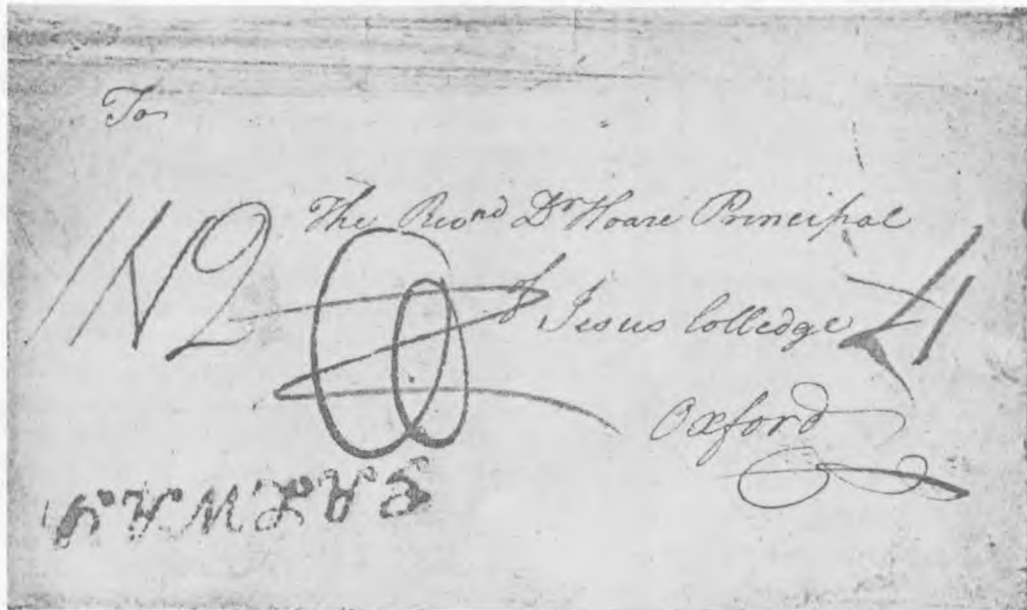 To
The Revnd Dr Hoare Principal
1N2
of Jesus Colledge 4
Oxford